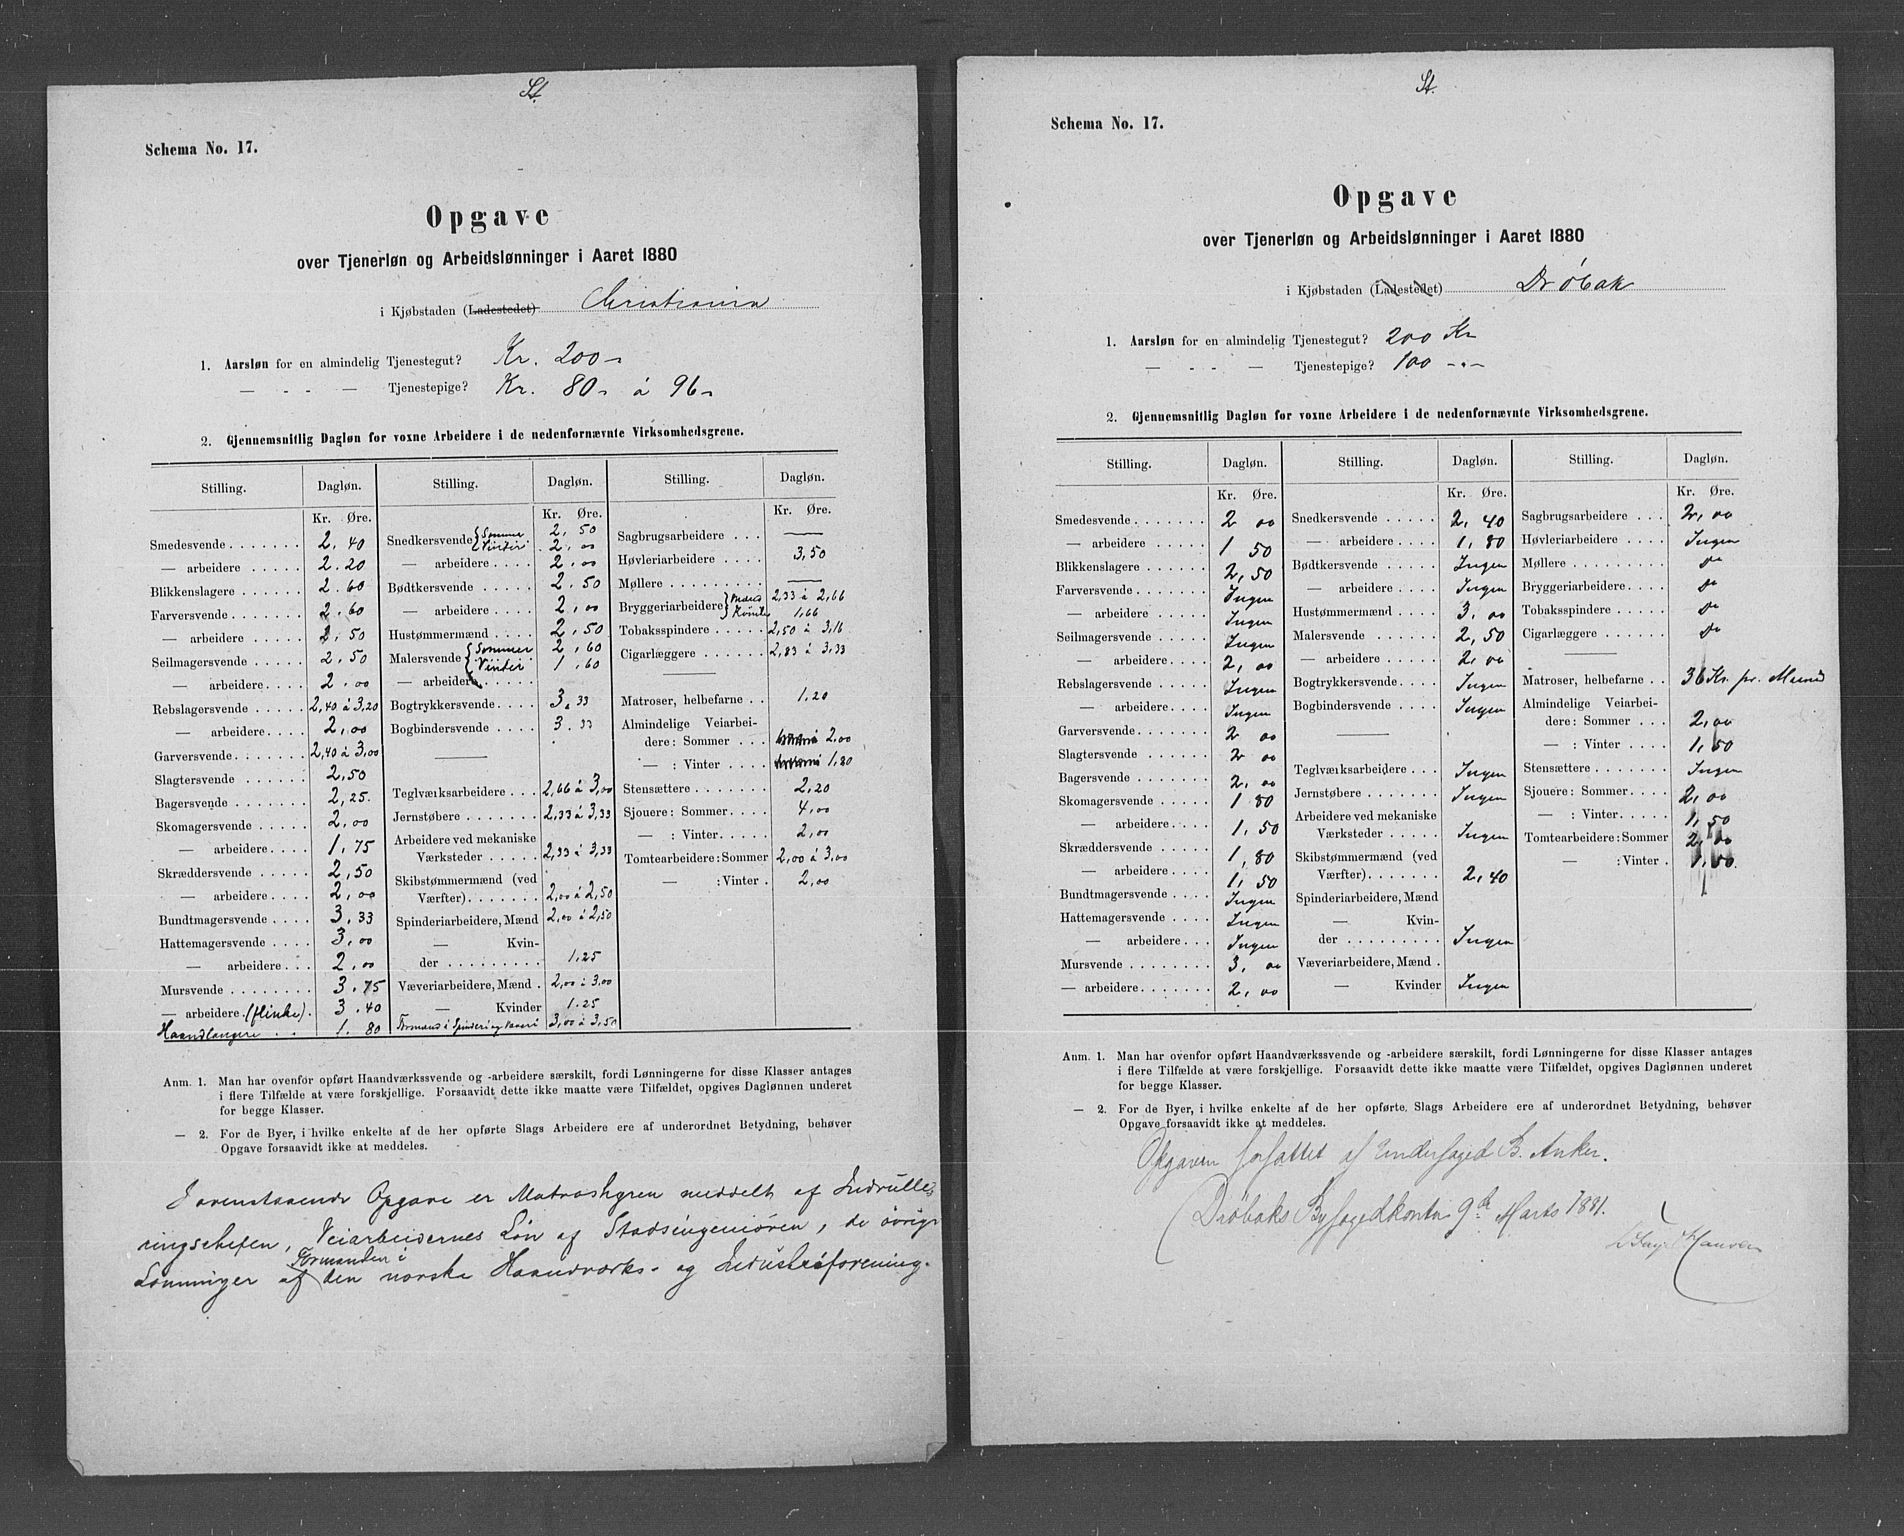 St.
Schema No. 17.
Opgave
over Tjenerløn og Arbeidslønninger i Aaret 1880
i Kjøbstaden (Ladestedet) Christiania
1. Aarsløn for en almindelig Tjenestegut? Kr. 200 "
— - - — Tjenestepige? Kr. 80 " á 96 "
2. Gjennemsnitlig Dagløn for voxne Arbeidere i de nedenfornævnte Virksomhedsgrene.
Stilling. Dagløn. Stilling. Dagløn. Stilling. Dagløn.
Kr. Øre. Kr. Øre. Kr. Øre.
Smedesvende 2. 40
— arbeidere 2. 20
Blikkenslagere 2. 60
Farversvende 2. 60
— arbeidere 2. 50
Seilmagersvende 2. 50
— arbeidere 2. 00
Rebslagersvende 2,40 á 3,20
— arbeidere 2,00
Garversvende 2,40 á 3,00
Slagtersvende 2,50
Bagersvende 2,25.
Skomagersvende 2,00
— arbeidere 1,75
Skræddersvende 2,50
— arbeidere 2,00
Bundtmagersvende 3,33
Hattemagersvende 3,00
— arbeidere 2,00
Mursvende 3.75
— arbeidere (flinke) 3.40
Haandlangere 1. 80
Snedkersvende { Sommer 2, 50
{ Vinter 2, 00
— arbeidere 2. 00
Bødtkersvende 2. 50
— arbeidere 2, 00
Hustømmermænd 2, 50
Malersvende { Sommer 2, 60
{ Vinter 1. 60
— arbeidere
Bogtrykkersvende 3. 33
Bogbindersvende 3. 33
Teglværksarbeidere 2,66 á 3,00
Jernstøbere 2,33 á 3,33
Arbeidere ved mekaniske
Værksteder 2,33 á 3,33
Skibstømmermænd (ved
Værfter) 2,00 á 2,50
Spinderiarbeidere, Mænd 2,00 á 2,50
— Kvin-
der 1.25
Væveriarbeidere, Mænd 2,00 á 3,00
— Kvinder 1.25
Formænd i Spinderi og Væveri 3,00 á 3,50
Sagbrugsarbeidere —
Høvleriarbeidere 3,50
Møllere —
Bryggeriarbeidere } Mænd 2,33 á 2,66
} Kvinder 1,66
Tobaksspindere 2,50 á 3,16
Cigarlæggere 2,83 á 3,33
Matroser, helbefarne 1.20
Almindelige Veiarbei-
dere: Sommer 2,00
— : Vinter 1,80
Stensættere 2,20
Sjouere: Sommer 4,00
— : Vinter 2,00
Tomtearbeidere: Sommer 2,00 á 3,00
— : Vinter 2,00
Anm. 1. Man har ovenfor opført Haandværkssvende og -arbeidere særskilt, fordi Lønningerne for disse Klasser antages
i flere Tilfælde at være forskjellige. Forsaavidt dette ikke maatte være Tilfældet, opgives Daglønnen underet
for begge Klasser.
— 2. For de Byer, i hvilke enkelte af de her opførte Slags Arbeidere ere af underordnet Betydning, behøver
Opgave forsaavidt ikke at meddeles.
Forenstaaende Opgave er Matroshyren meddelt af Indrulle-
ringschefen, Veiarbeidernes Løn af Stadsingeniøren, de øvrige
Lønninger af Formanden i den norske Haandværks- og Industriforening.
St.
Schema No. 17.
Opgave
over Tjenerløn og Arbeidslønninger i Aaret 1880
i Kjøbstaden (Ladestedet) Drøbak
1. Aarsløn for en almindelig Tjenestegut? 200 Kr
— - - — Tjenestepige? 100 -"-
2. Gjennemsnitlig Dagløn for voxne Arbeidere i de nedenfornævnte Virksomhedsgrene.
Stilling. Dagløn. Stilling. Dagløn. Stilling. Dagløn.
Kr. Øre. Kr. Øre. Kr. Øre.
Smedesvende 2 00
— arbeidere 1 50
Blikkenslagere 2, 50
Farversvende Ingen
— arbeidere Ingen
Seilmagersvende Ingen
— arbeidere 2, 00
Rebslagersvende Ingen
— arbeidere Ingen
Garversvende 2 00
Slagtersvende 2 00
Bagersvende 2, 00
Skomagersvende 1 80
— arbeidere 1, 50
Skræddersvende 1, 80
— arbeidere 1, 50
Bundtmagersvende Ingen
Hattemagersvende Ingen
— arbeidere Ingen
Mursvende 3. 00
— arbeidere 2, 00
Snedkersvende 2, 40
— arbeidere 1, 80
Bødtkersvende Ingen
— arbeidere Ingen
Hustømmermænd 3, 00
Malersvende 2, 50
— arbeidere 2, 00
Bogtrykkersvende Ingen
Bogbindersvende Ingen
Teglværksarbeidere Ingen
Jernstøbere Ingen
Arbeidere ved mekaniske
Værksteder Ingen
Skibstømmermænd (ved
Værfter) 2, 40
Spinderiarbeidere, Mænd
— Kvin-
der Ingen
Væveriarbeidere, Mænd
— Kvinder Ingen
Sagbrugsarbeidere 2, 00
Høvleriarbeidere Ingen
Møllere do
Bryggeriarbeidere do
Tobaksspindere do
Cigarlæggere do
Matroser, helbefarne 36 Kr. pr. Maaned
Almindelige Veiarbei-
dere: Sommer 2,00
— : Vinter 1,50
Stensættere Ingen
Sjouere: Sommer 2,00
— : Vinter 1,50
Tomtearbeidere: Sommer 2,00
— : Vinter
Anm. 1. Man har ovenfor opført Haandværkssvende og -arbeidere særskilt, fordi Lønningerne for disse Klasser antages
i flere Tilfælde at være forskjellige. Forsaavidt dette ikke maatte være Tilfældet, opgives Daglønnen underet
for begge Klasser.
— 2. For de Byer, i hvilke enkelte af de her opførte Slags Arbeidere ere af underordnet Betydning, behøver
Opgave forsaavidt ikke at meddeles.
Opgaven forfattet af Underfoged B. Anker.
Drøbaks Byfogedkontor 9de Marts 1881.
Hansen